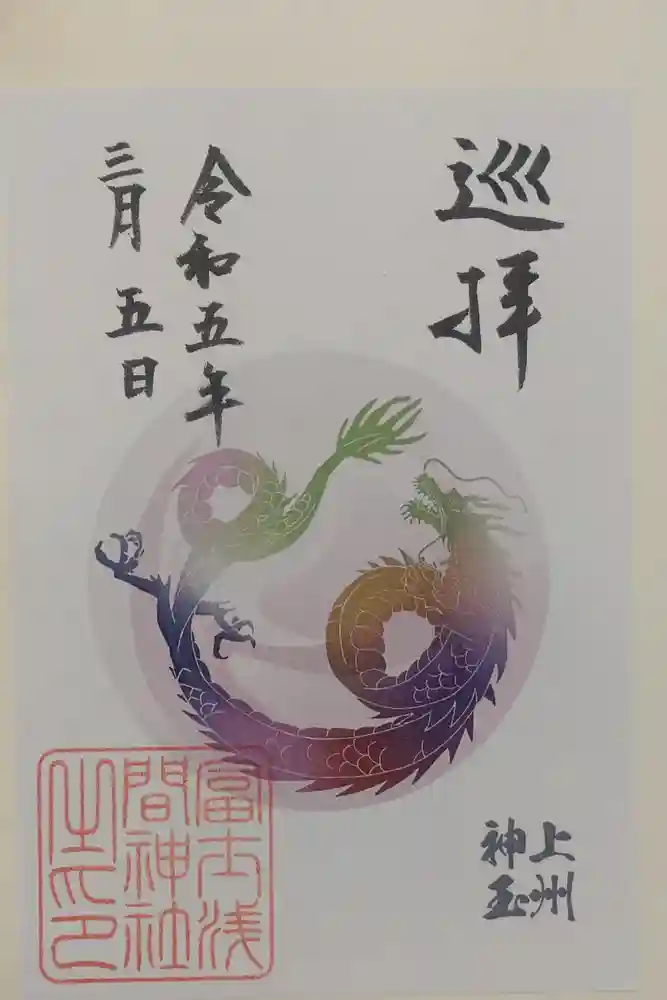 巡拝
令和五年
三月五日
上州
神玉
富士浅
間神社
之印